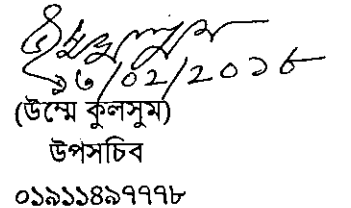 ১৬/০২/২০১৮
(উম্মে কুলসুম)
উপসচিব
০১৯১১৪৯৭৭৭৮